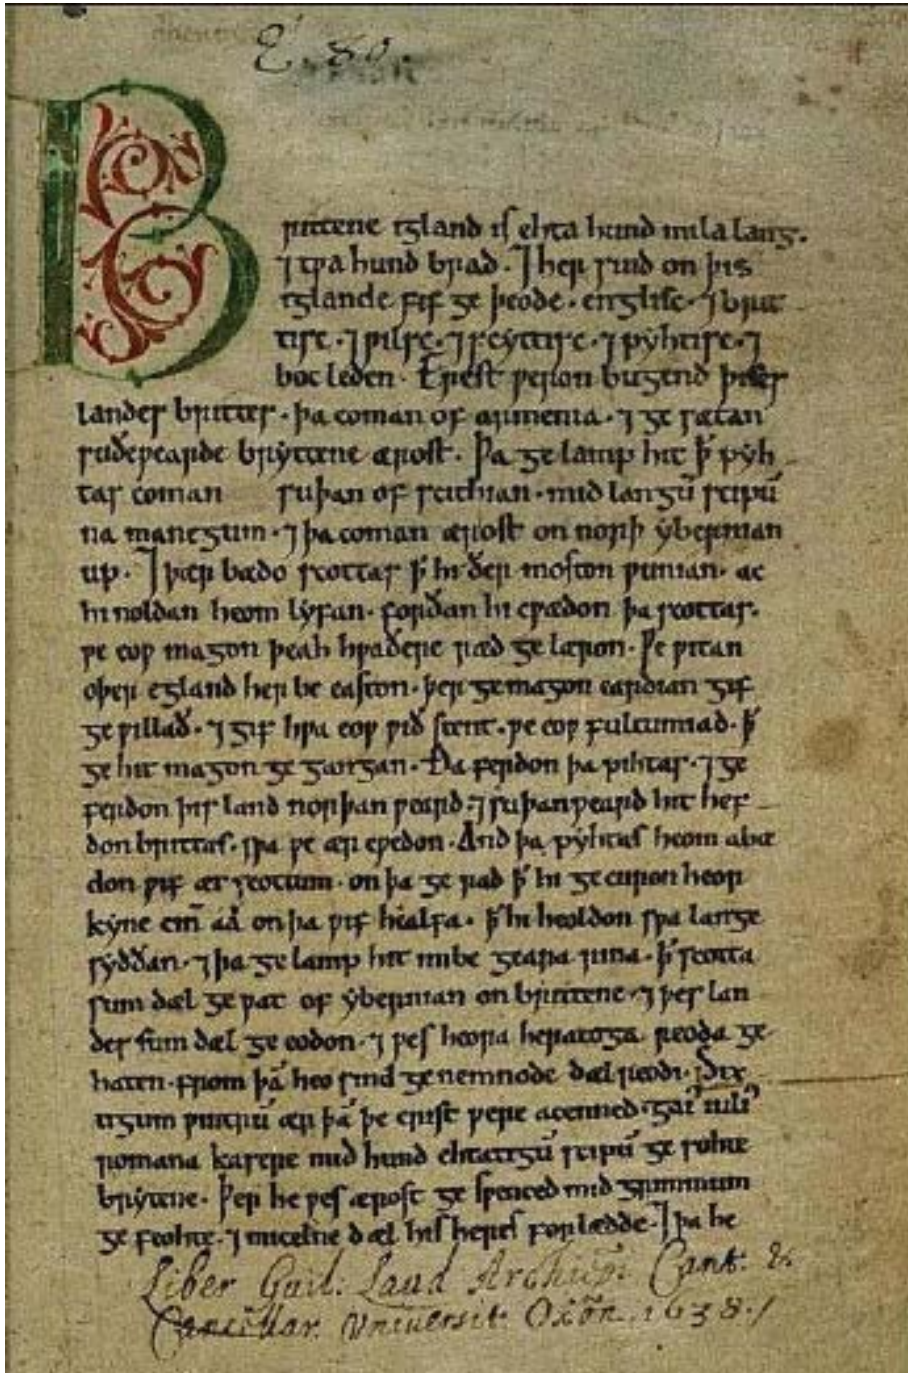 E. 80.
Brittene igland is ehta hund mila lang.
⁊ tƿa hund brad. ⁊ her sind on þis
iglande fif ge þeode. englisc. ⁊ brit
tisc. ⁊ ƿilsc. ⁊ scyttisc. ⁊ pyhtisc. ⁊
boc leden. Erest ƿeron bugend þises
landes brittes. þa coman of armenia. ⁊ ge sætan
suðeƿearde bryttene ærost. Þa ge lamp hit ꝥ pyh
tas coman suþan of scithian. mid langū scipū
na manegum. ⁊ þa coman ærost on norþ ybernian
up. ⁊ þær bædo scottas ꝥ hi ðer moston ƿunian. ac
hi noldan heom lyfan. forðan hi cƿædon þa scottas.
ƿe eoƿ magon þeah hƿaðere ræd ge læron. Ƿe ƿitan
oþer egland her be easton. þer ge magon eardian gif
ge ƿillað. ⁊ gif hƿa eoƿ ƿið stent. ƿe eoƿ fultumiad. ꝥ
ge hit magon ge gangan. Ða ferdon þa pihtas. ⁊ ge
ferdon þis land norþan ƿeard. ⁊ suþanƿeard hit hef
don brittas. sƿa ƿe ær cƿedon. And þa pyhtas heom abæ
don ƿif æt scottum. on þa ge rad ꝥ hi ge curon heor
kyne cīn aā on þa ƿif healfa. ꝥ hi heoldon sƿa lange
syððan. ⁊ þa ge lamp hit imbe geara rina. ꝥ scotta
sum dæl ge ƿat of ybernian on brittene. ⁊ þes lan
des sum dæl ge eodon. ⁊ ƿes heora heratoga reoda ge
haten. from þā heo sind ge nemnode dæl reodi. Six
tigum ƿintrū ær þā þe crist ƿere acenned. gaiꝰ iuliꝰ
romana kasere mid hund ehtatigū scipū ge sohte
brytene. Þer he ƿes ærost ge sƿenced mid grimmum
ge feohte. ⁊ micelne dæl his heres forlædde. ⁊ þa he
Liber Guil: Laud Archiep̄i: Cant: &
Cancillar. Universit: Oxōn. 1638./